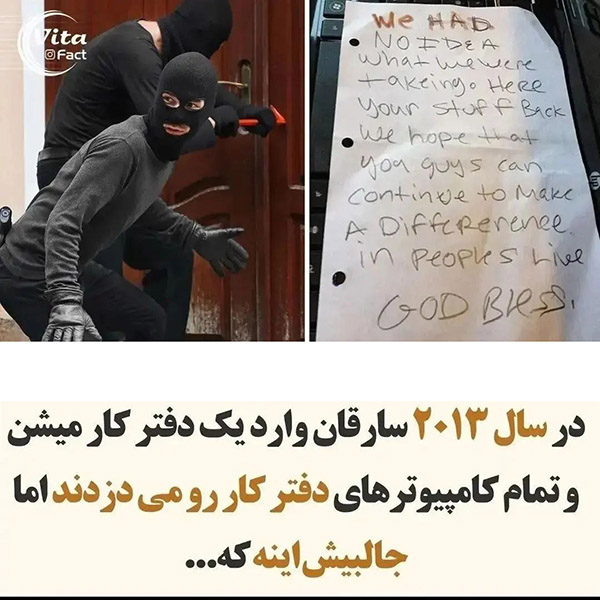 Vita
Fact
We HAD
NO IDEA
what we were
takeing. Here
your stuff Back
We hope that
you guys can
continue to Make
A Differenence
in peoples Live
GOD Bless.
در سال ۲۰۱۳ سارقان وارد یک دفتر کار میشن
و تمام کامپیوترهای دفتر کار رو می دزدند اما
جالبیش اینه که...